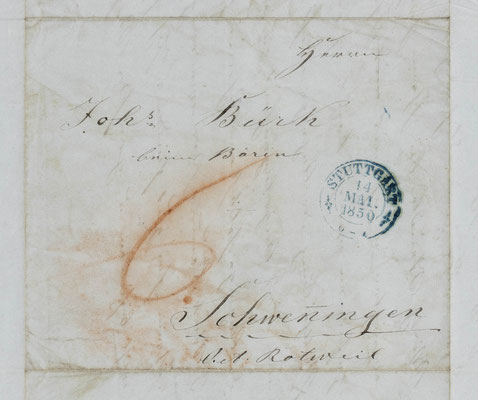 Herrn
Johs Bürk
beim Bären
STUTTGART
14
MAI.
1850
6
Schwenningen
Rotweil